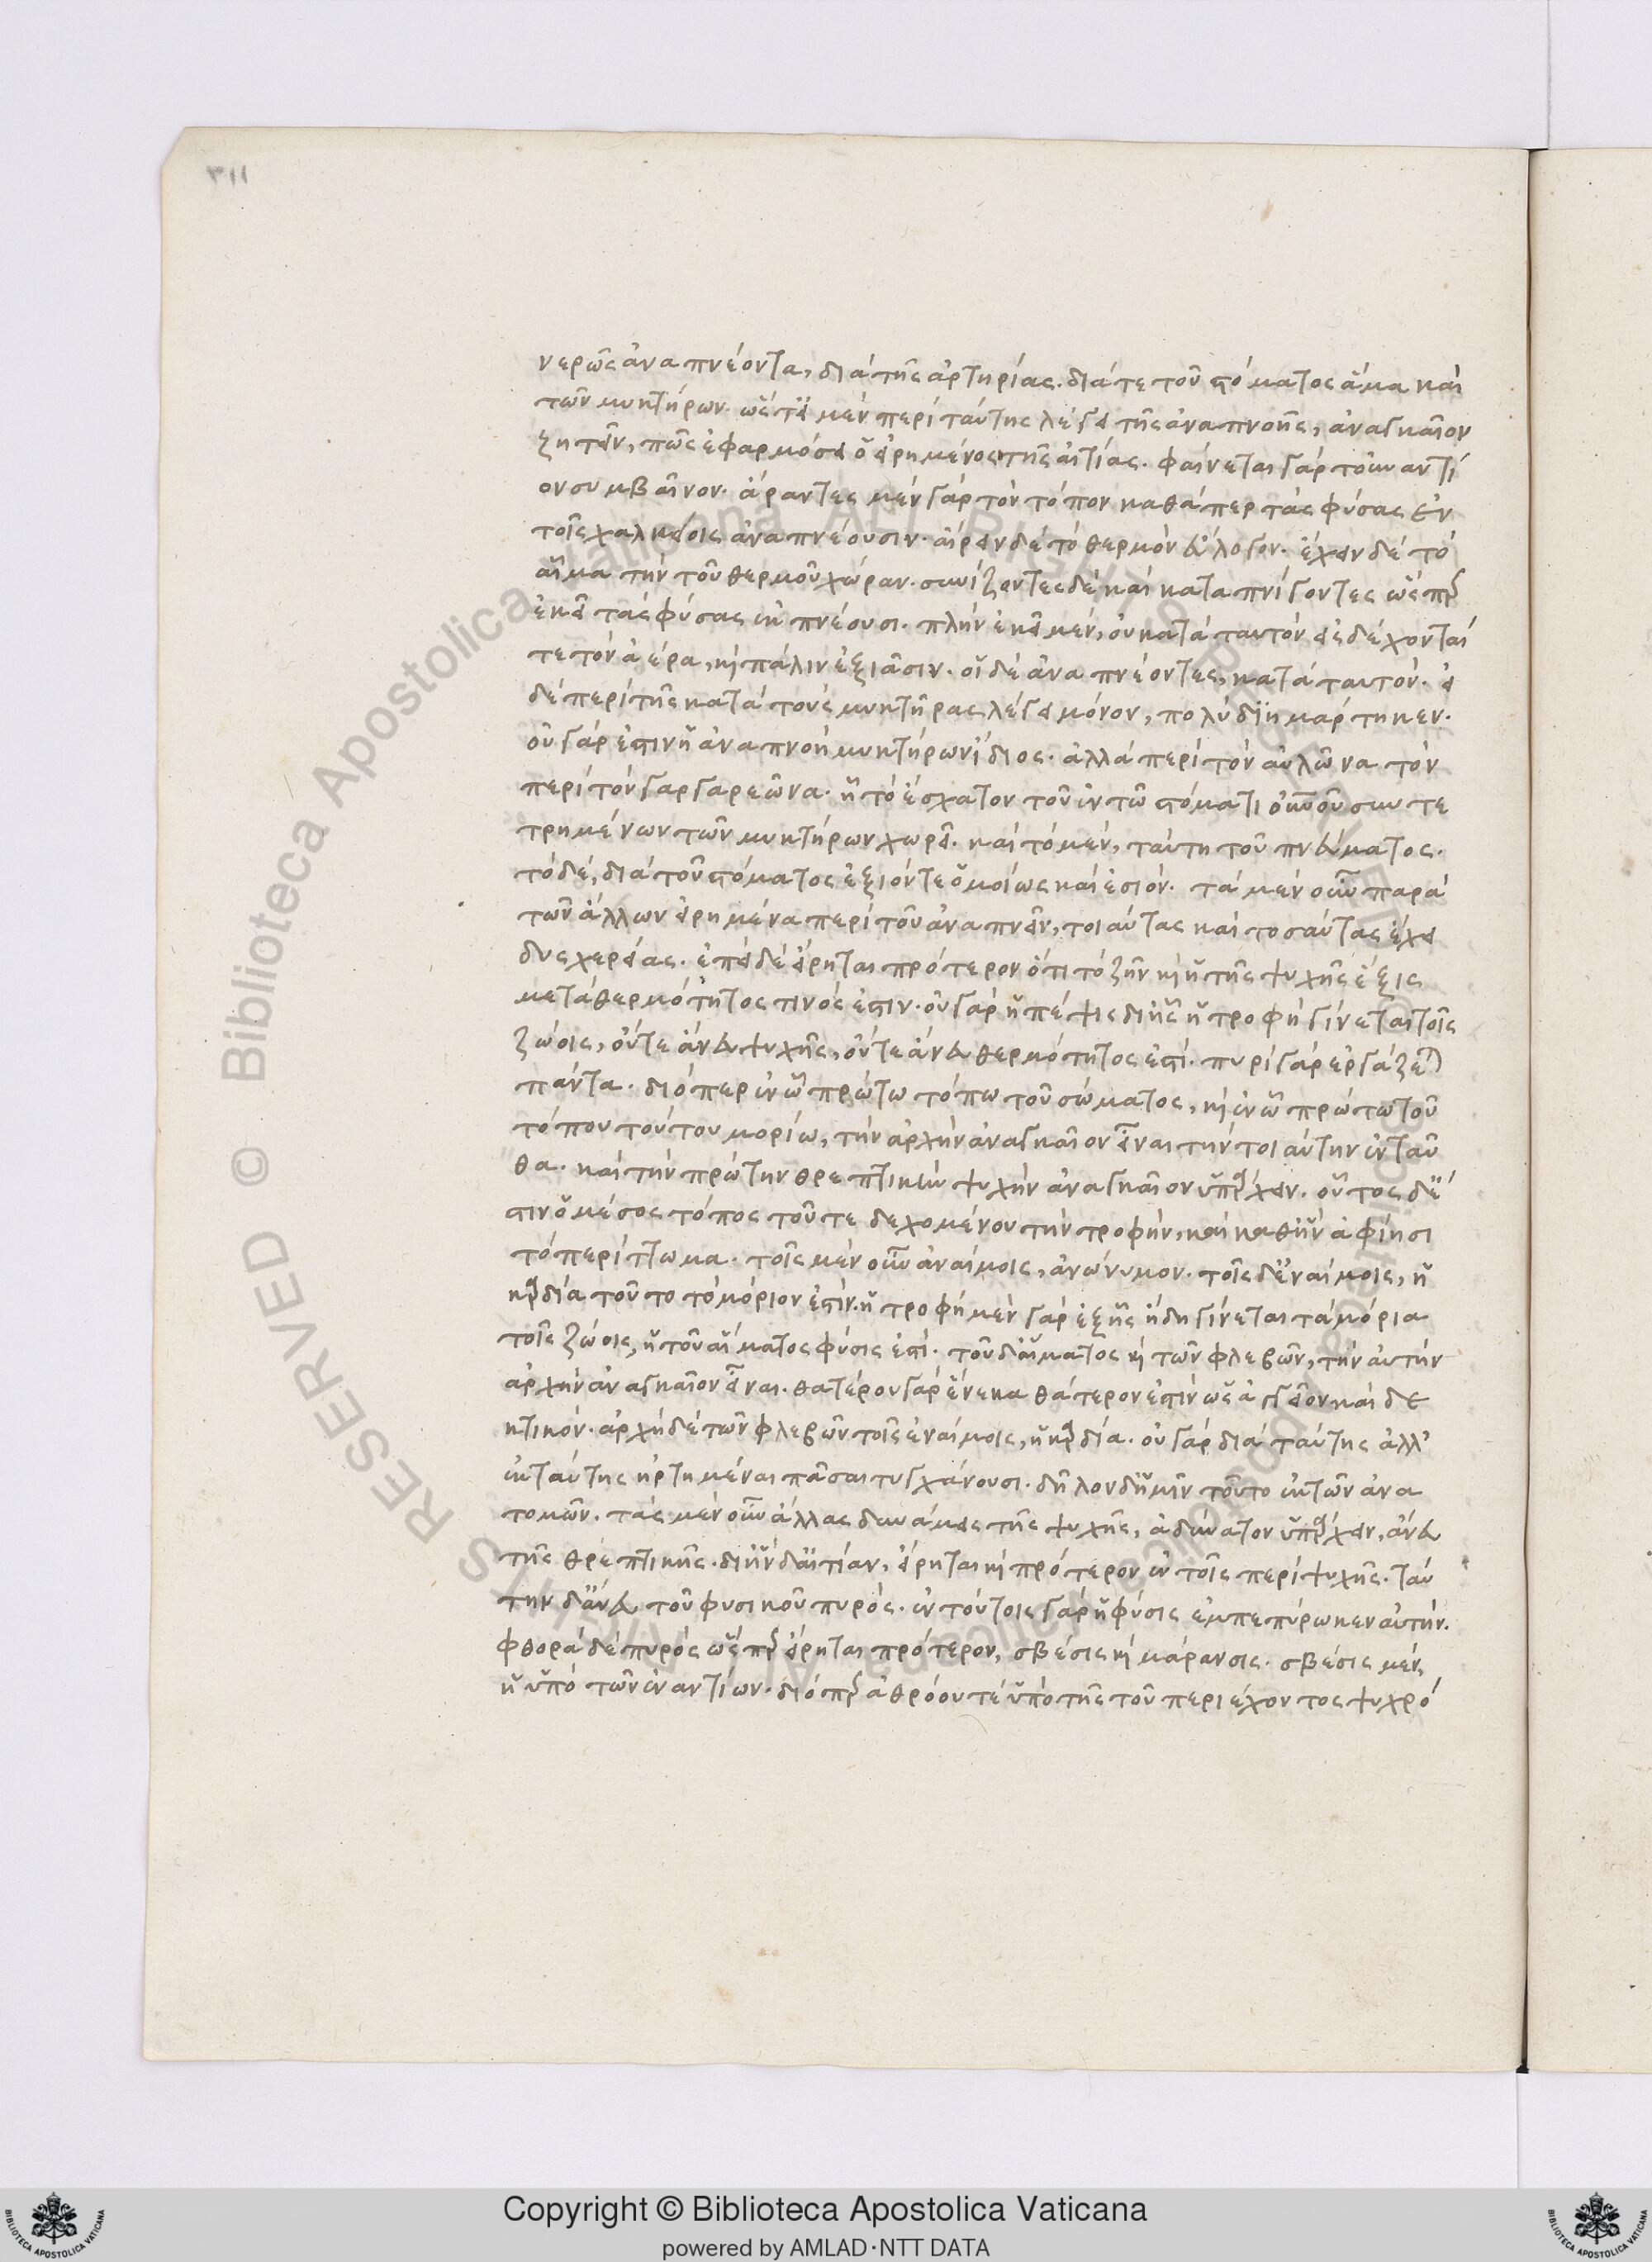 νερῶς ἀναπνέοντα, διὰ τῆς ἀρτηρίας. διά τε τοῦ στόματος ἅμα καὶ
τῶν μυκτήρων. ὥστ' εἰ μὲν περὶ ταύτης λέγει τῆς ἀναπνοῆς, ἀναγκαῖον
ζητεῖν, πῶς ἐφαρμόσει ὁ εἰρημένος τῆς αἰτίας. φαίνεται γὰρ τοὐναντί
ον συμβαῖνον. ἄραντες μὲν γὰρ τὸν τόπον καθάπερ τὰς φύσας ἐν
τοῖς χαλκείοις ἀναπνέουσιν. αἴρειν δὲ τὸ θερμὸν εὔλογον. ἔχειν δὲ τὸ
αἷμα τὴν τοῦ θερμοῦ χώραν. συνίζοντες δὲ καὶ καταπνίγοντες ὥσπερ
ἐκεῖ τὰς φύσας ἐκπνέουσι. πλὴν ἐκεῖ μὲν, οὐ κατὰ ταυτὸν εἰσδέχονταί
τε τὸν ἀέρα, καὶ πάλιν ἐξιᾶσιν. οἱ δὲ ἀναπνέοντες, κατὰ ταυτόν. εἰ
δὲ περὶ τῆς κατὰ τοὺς μυκτῆρας λέγει μόνον, πολὺ διημάρτηκεν.
οὐ γάρ ἐστιν ἡ ἀναπνοὴ μυκτήρων ἴδιος. ἀλλὰ περὶ τὸν αὐλῶνα τὸν
περὶ τὸν γαργαρεῶνα. ᾗ τὸ ἔσχατον τοῦ ἐν τῷ στόματι οὐνοῦ συντε
τρημένων τῶν μυκτήρων χωρεῖ. καὶ τὸ μὲν, ταύτῃ τοῦ πνεύματος.
τὸ δὲ, διὰ τοῦ στόματος ἐξιόν τε ὁμοίως καὶ εἰσιόν. τὰ μὲν οὖν παρὰ
τῶν ἄλλων εἰρημένα περὶ τοῦ ἀναπνεῖν, τοιαύτας καὶ τοσαύτας ἔχει
δυσχερείας. ἐπεὶ δὲ εἴρηται πρότερον ὅτι τὸ ζῆν καὶ ἡ τῆς ψυχῆς ἕξις
μετὰ θερμότητος τινός ἐστιν. οὐ γὰρ ἡ πέψις δι' ἧς ἡ τροφὴ γίνεται τοῖς
ζώοις, οὔτε ἄνευ ψυχῆς, οὔτε ἄνευ θερμότητος ἐστί. πυρὶ γὰρ ἐργάζεται
πάντα. διόπερ ἐν ᾧ πρώτῳ τόπῳ τοῦ σώματος, καὶ ἐν ᾧ πρώτῳ τοῦ
τόπου τούτου μορίῳ, τὴν ἀρχὴν ἀναγκαῖον εἶναι τὴν τοιαύτην ἐνταῦ
θα. καὶ τὴν πρώτην θρεπτικὴν ψυχὴν ἀναγκαῖον ὑπάρχειν. οὗτος δ' ἔ
στιν ὁ μέσος τόπος τοῦ τε δεχομένου τὴν τροφὴν, καὶ καθ' ἣν ἀφίησι
τὸ περίττωμα. τοῖς μὲν οὖν ἀναίμοις, ἀνώνυμον. τοῖς δ' ἐναίμοις, ἡ
καρδία τοῦτο τὸ μόριον ἐστίν. ἡ τροφὴ μὲν γὰρ ἐξ ἧς ἤδη γίνεται τὰ μόρια
τοῖς ζώοις, ἡ τοῦ αἵματος φύσις ἐστί. τοῦ δ' αἵματος καὶ τῶν φλεβῶν, τὴν αὐτὴν
ἀρχὴν ἀναγκαῖον εἶναι. θατέρου γὰρ ἕνεκα θάτερον ἐστὶν ὡς ἀγγεῖον καὶ δε
κτικόν. ἀρχὴ δὲ τῶν φλεβῶν τοῖς ἐναίμοις, ἡ καρδία. οὐ γὰρ διὰ ταύτης ἀλλ'
ἐκ ταύτης ἠρτημέναι πᾶσαι τυγχάνουσι. δῆλον δ' ἡμῖν τοῦτο ἐκ τῶν ἀνα
τομῶν. τὰς μὲν οὖν ἄλλας δυνάμεις τῆς ψυχῆς, ἀδύνατον ὑπάρχειν, ἄνευ
τῆς θρεπτικῆς. δι' ἣν δ' αἰτίαν, εἴρηται καὶ πρότερον ἐν τοῖς περὶ ψυχῆς. ταύ
την δ' ἄνευ τοῦ φυσικοῦ πυρός. ἐν τούτοις γὰρ ἡ φύσις ἐμπεπύρωκεν αὐτήν.
φθορὰ δὲ πυρὸς ὥσπερ εἴρηται πρότερον, σβέσις καὶ μάρανσις. σβέσις μὲν
ἡ ὑπὸ τῶν ἐναντίων. διόπερ ἀθρόον τὲ ὑπὸ τῆς τοῦ περιέχοντος ψυχρό
Copyright © Biblioteca Apostolica Vaticana
powered by AMLAD·NTT DATA